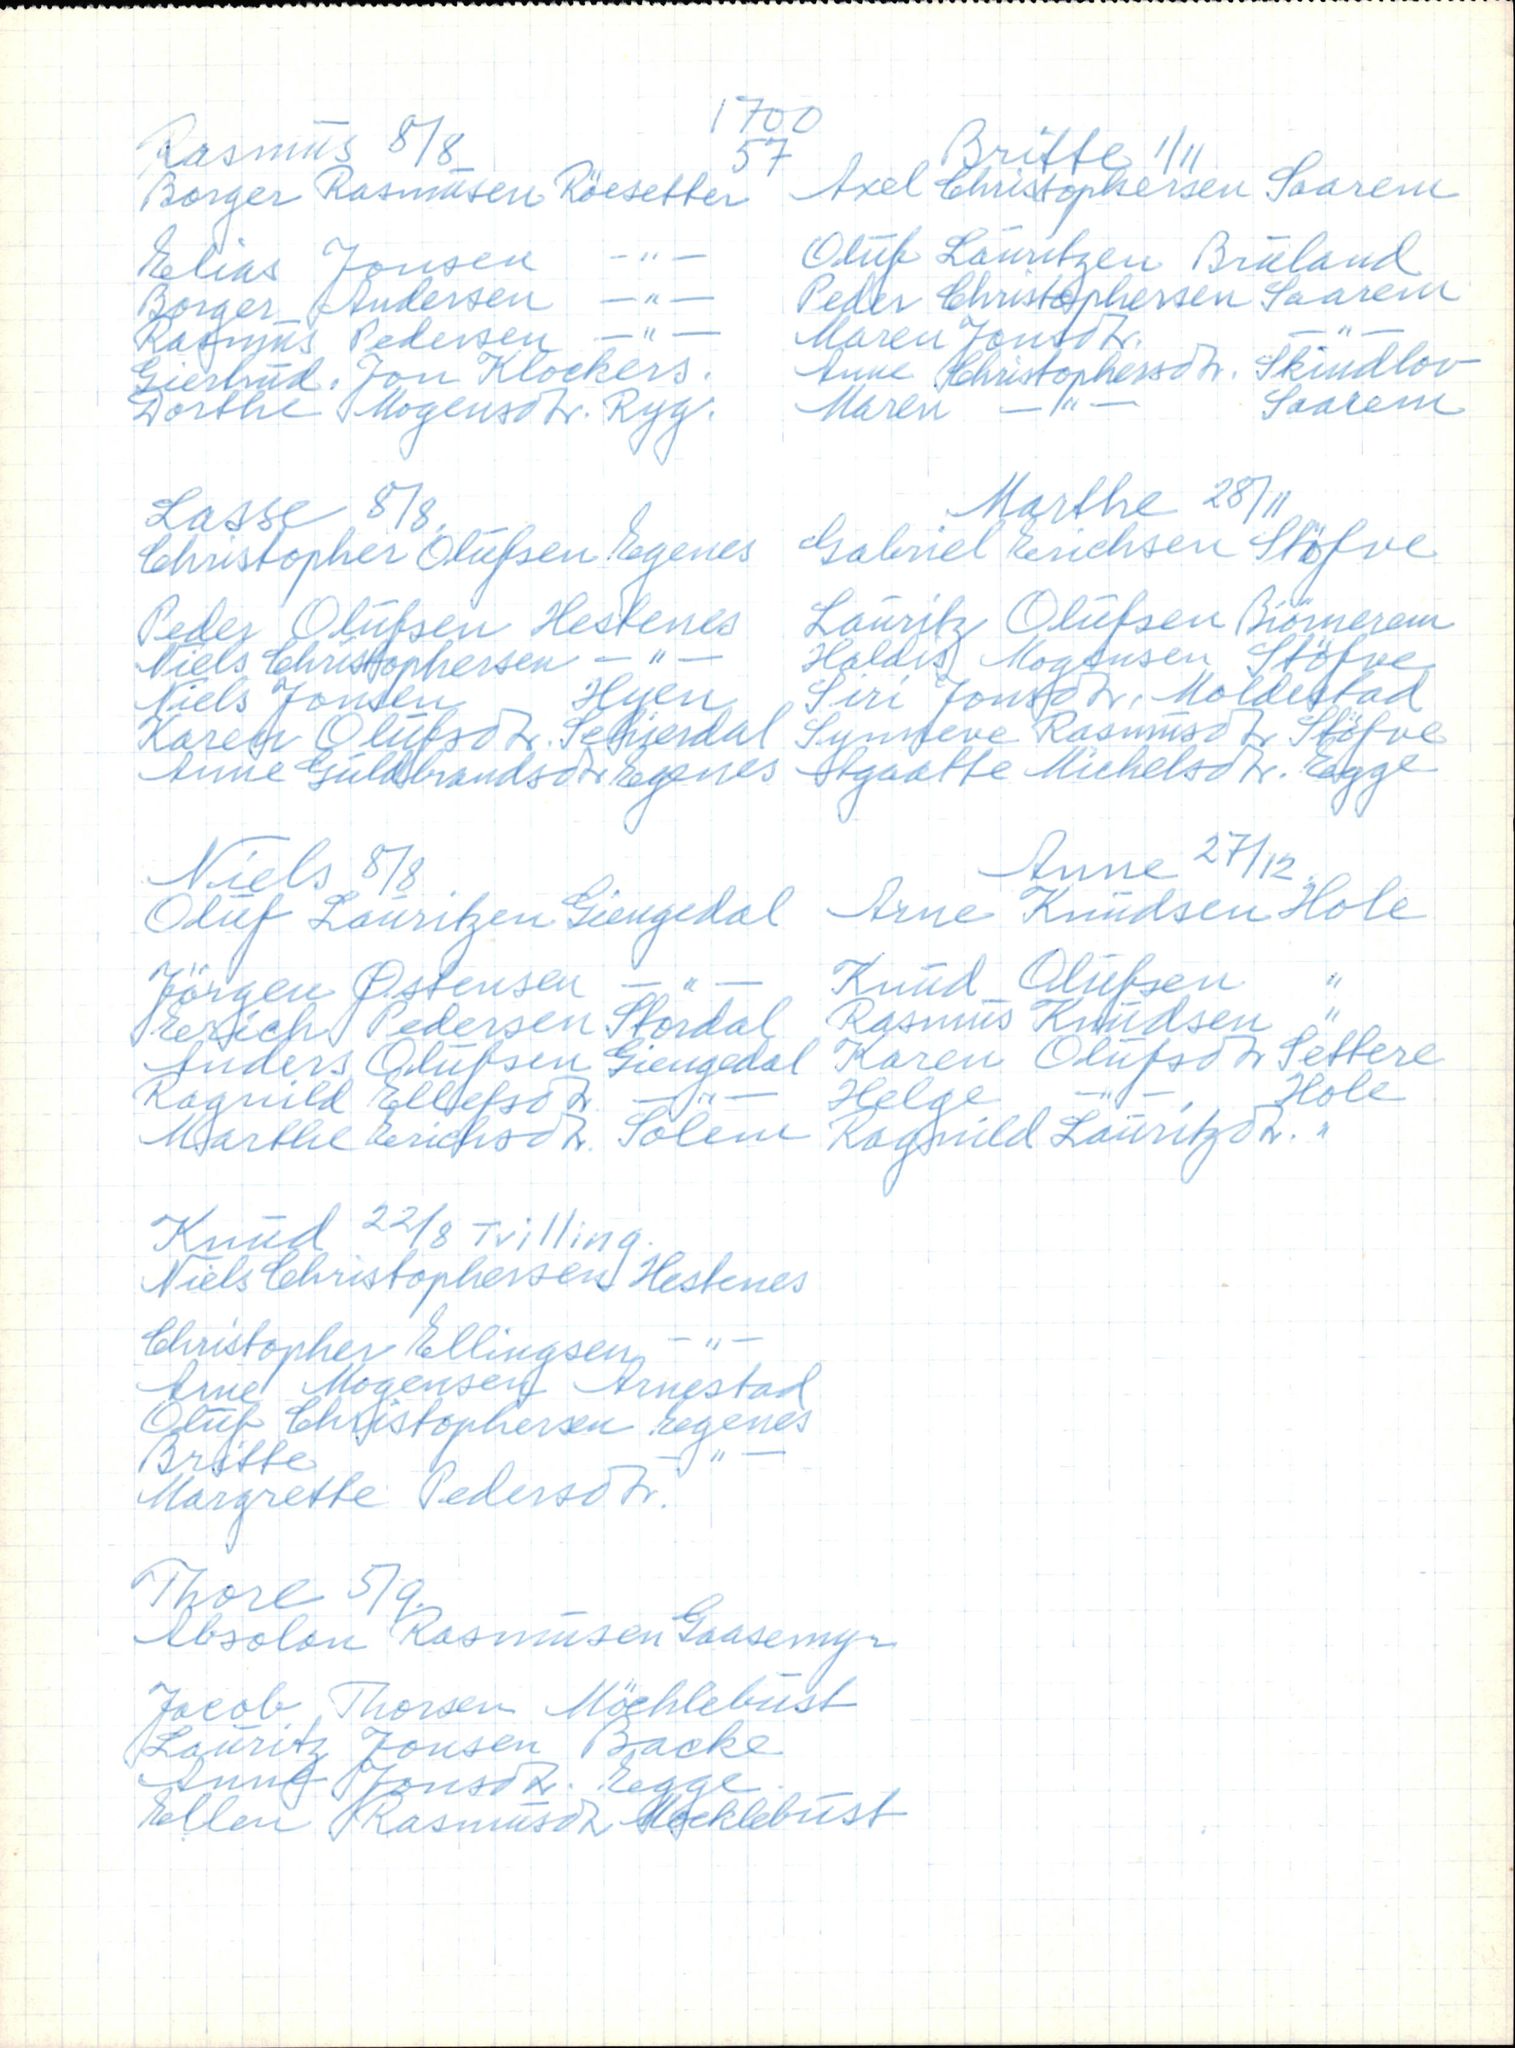 1700
57
Rasmus 8/8
Borger Rasmusen Röesetter
Elias Jonsen -"-
Borger Andersen -"-
Rasmus Pedersen -"-
Giertrud. Jon Klockers.
Dorthe Mogensdtr. Ryg.
Lasse 8/8.
Christopher Olufsen Egenes
Peder Olufsen Hestenes
Niels Christophersen -"-
Niels Jonsen Hyen
Karen Olufsdtr.
Anne Guldbrandsdtr Egenes
Niels 8/8
Oluf Lauritzen Giengedal
Jörgen Østensen -"-
Erich Pedersen Stordal
Anders Olufsen Giengedal
Ragnild Ellefsdtr -"-
Marthe Erichsdtr. Solem
Knud 22/8 Tvilling.
Niels Christophersen Hestenes
Christopher Ellingsen -"-
Arne Mogensen Arnestad
Oluf Christophersen Egenes
Britte -"-
Margrette Pedersdtr.
Thore 5/9.
Absolon Rasmusen Gaasemyr
Jacob Thorsen Möchlebust
Lauritz Jonsen Backe
Anne Jonsdtr. Egge.
Ellen Rasmusdtr Mocklebust
Britte 1/11
Axel Christophersen Saarem
Oluf Lauritzen Bruland
Peder Christophersen Saarem
Maren Jonsdtr. -"-
Anne Christophersdtr. Skindlov
Maren -"- Saarem
Marthe 28/11
Gabriel Erichsen Stöfve
Lauritz Olufsen Biörnerem
Haldis Mogensen Stöfve
Siri Jonsdtr. Moldestad
Synneve Rasmusdtr Stöfve
Agaatte Michelsdtr. Egge
Anne 27/12.
Arne Knudsen Hole
Knud Olufsen "
Rasmus Knudsen "
Karen Olufsdtr Settere
Helge -"-, Hole
Ragnild Lauritzdtr. "